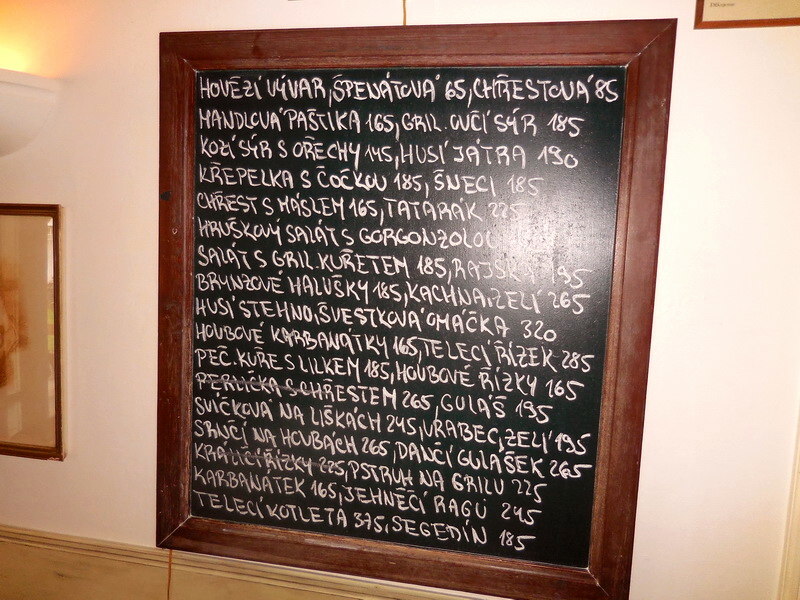 HOVĚZÍ VÝVAR, ŠPENÁTOVÁ 65, CHŘESTOVÁ 85
MANDLOVÁ PAŠTIKA 165, GRIL. OVČÍ SÝR 185
KOZÍ SÝR S OŘECHY 145, HUSÍ JÁTRA 190
KŘEPELKA S ČOČKOU 185, ŠNECI 185
CHŘEST S MÁSLEM 165, TATARÁK 225
HRUŠKOVÝ SALÁT S GORGONZOLOU
SALÁT S GRIL. KUŘETEM 185, RAJSKÁ 195
BRYNZOVÉ HALUŠKY 185, KACHNA, ZELÍ 265
HUSÍ STEHNO, ŠVESTKOVÁ OMÁČKA 320
HOUBOVÉ KARBANÁTKY 165, TELECÍ ŘÍZEK 285
PEČ. KUŘE S LILKEM 185, HOUBOVÉ ŘÍZKY 165
PERLIČKA S CHŘESTEM 265, GULÁŠ 195
SVÍČKOVÁ NA LIŠKÁCH 245, VRABEC, ZELÍ 195
SRNČÍ NA HOUBÁCH 265, DANČÍ GULÁŠEK 265
KRÁLIČÍ ŘÍZKY 225, PSTRUH NA GRILU 225
KARBANÁTEK 165, JEHNĚČÍ RAGÚ 245
TELECÍ KOTLETA 375, SEGEDÍN 185